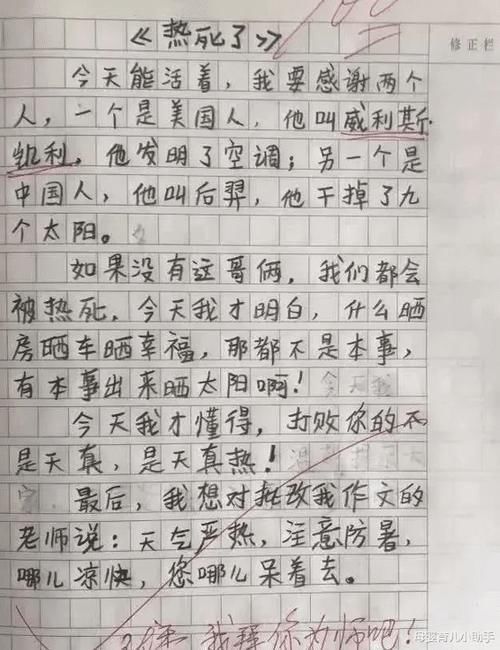 100
《热死了》
修正栏
今天能活着，我要感谢两个
人，一个是美国人，他叫威利斯·
凯利，他发明了空调；另一个是
中国人，他叫后羿，他干掉了九
个太阳。
如果没有这哥俩，我们都会
被热死，今天我才明白，什么晒
房晒车晒幸福，那都不是本事，
有本事出来晒太阳啊！
今天我才懂得，打败你的不
是天真，是天真热！
最后，我想对批改我作文的
老师说：天气严热，注意防暑，
哪儿凉快，您哪儿呆着去。
我拜你为师吧！
母婴育儿小助手